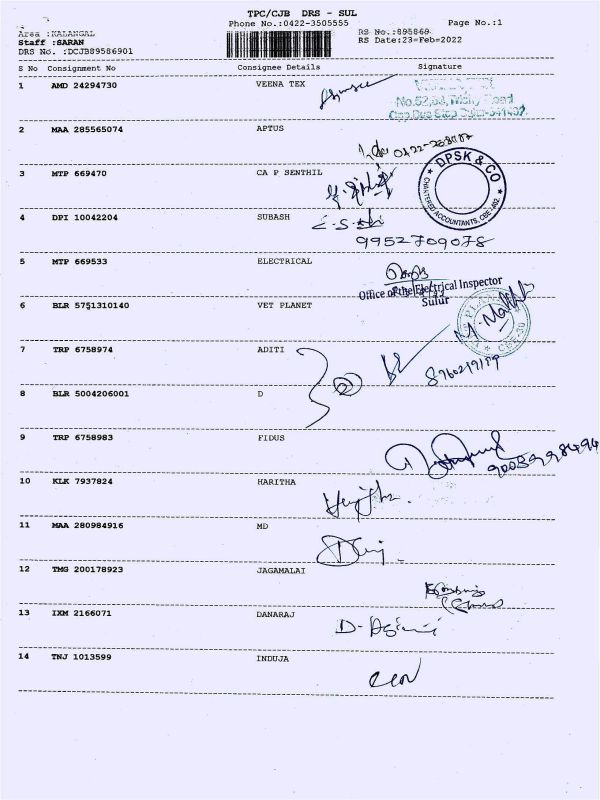 TPC/CJB DRS - SUL
Phone No.:0422-3505555 Page No.:1
Area :KALANGAL RS No.:895869
Staff :SARAN RS Date:23-Feb-2022
DRS No. :DCJB89586901
S No Consignment No Consignee Details Signature
1 AMD 24294730 VEENA TEX
2 MAA 285565074 APTUS
3 MTP 669470 CA P SENTHIL
DPSK & CO
CHARTERED ACCOUNTANTS, CBE
4 DPI 10042204 SUBASH
9952709078
5 MTP 669533 ELECTRICAL
Office of the Electrical Inspector
Sulur
6 BLR 5751310140 VET PLANET
7 TRP 6758974 ADITI
8 BLR 5004206001 D
9 TRP 6758983 FIDUS
10 KLK 7937824 HARITHA
11 MAA 280984916 MD
12 TMG 200178923 JAGAMALAI
13 IXM 2166071 DANARAJ
14 TNJ 1013599 INDUJA